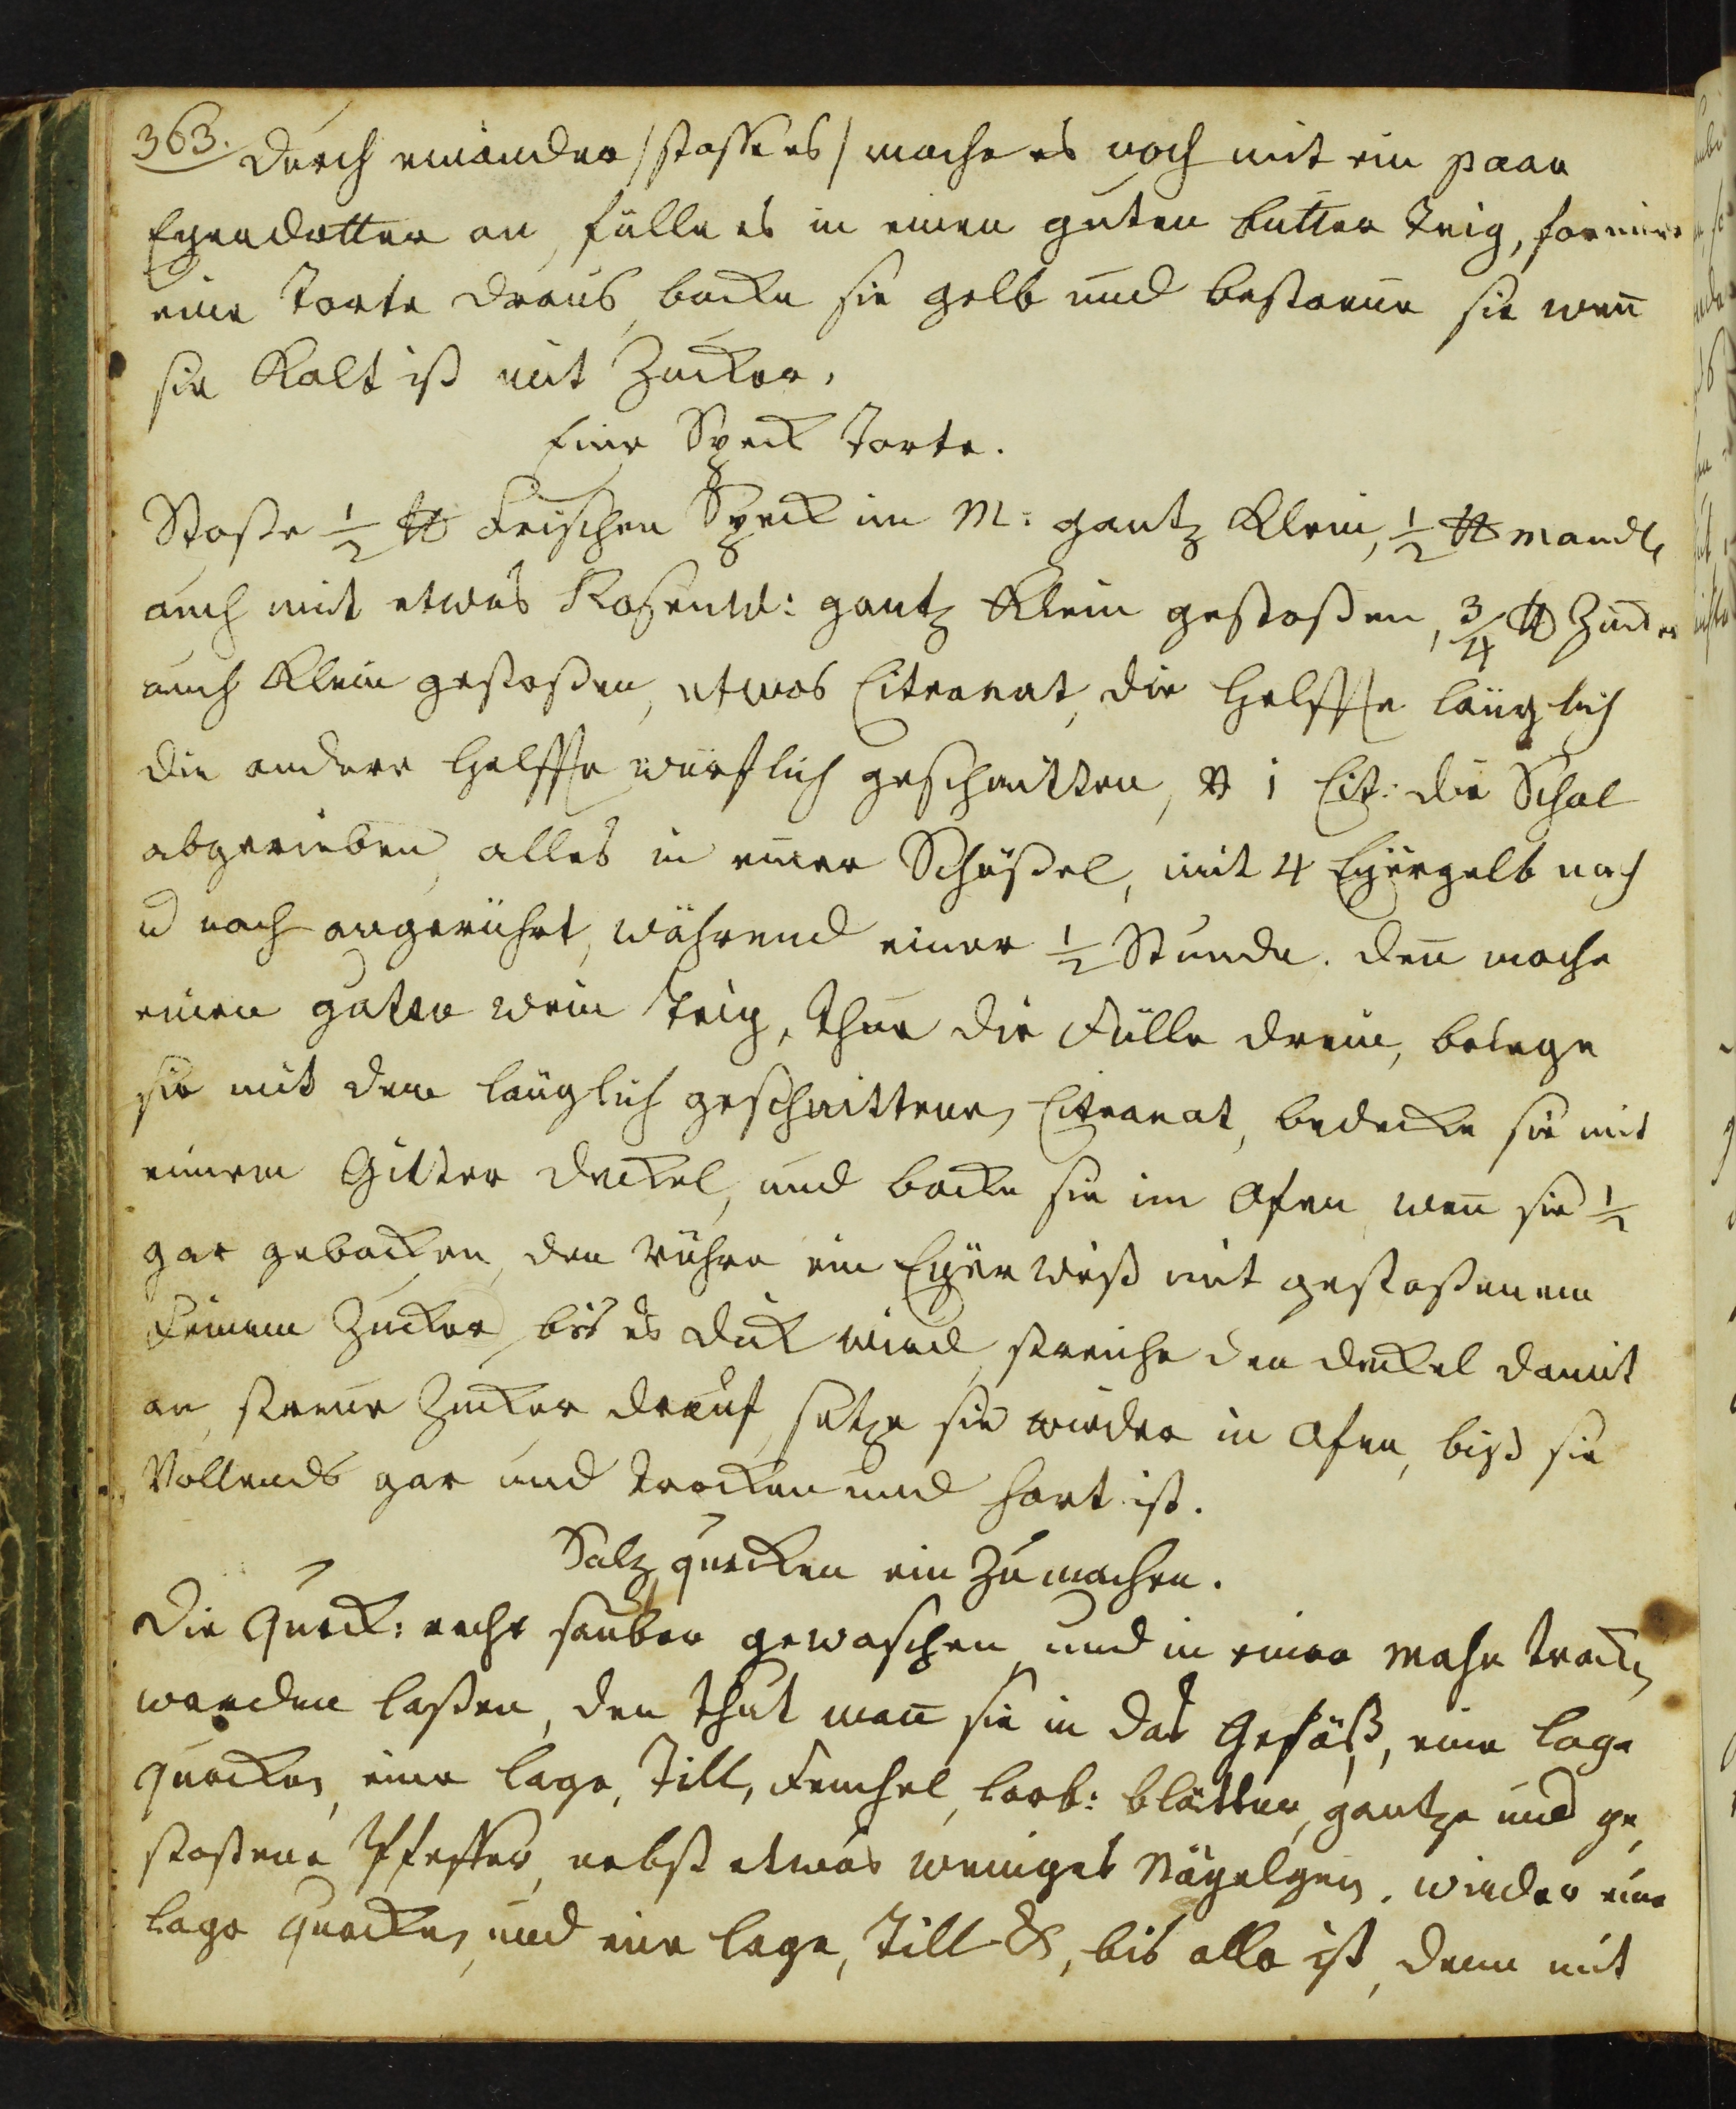 363. durch einander /stosse es/ mache es noch mit ein paar
Eyerdotter an, fülle es in einen guten butter teig, formire
eine Torte draus, backe sie gelb und bestreue sie wen̄
sie Kalt ist mit Zucker.
Eine Speck Torte.
Stosse ½ ℔ frischen Speck im M: gantz klein, ½ ℔ mandl
auch mit etwas Rosenw: gantz klein gestossen, ¾ ℔ Zucker
auch klein gestossen, etwas Citronat, die Helffte länglich
die andere Helffte würflich geschnitten, 1 Cit: die Schal
abgerieben, alles in einer Schüssel, mit 4 Eyergelb nach
u nach angerührt, während einer ½ Stunde. den̄ mache
einen guten wein teig, thue die Fülle drein, belege
sie mit dem länglich geschnittenen Citronat, bedecke sie mit
einem Gitter deckel, und backe sie im Ofen, wen̄ sie ½
gar gebacken, den rühre ein Eyerweiß mit gestossenem
feinem Zucker, bis es dick wird, streiche den deckel damit
an, streue Zucker drauf, setze sie wieder in Ofen, biß sie
Vollends gar und trocken und hart ist.
Saltz gurcken ein Zu machen.
Die Gurck: recht sauber gewaschen, und in einer trocken
werden lassen, den thut man̄ sie in das Gefäß, eine lage
gurcken, eine lage, Till, Fenchel, lorb: blätter, gantze und ge
stossene Pfeffer, nebst etwas weniges Nägelgen. wieder eine
lage gurcken, und eine lage, Till &, bis alle ist, denn mit